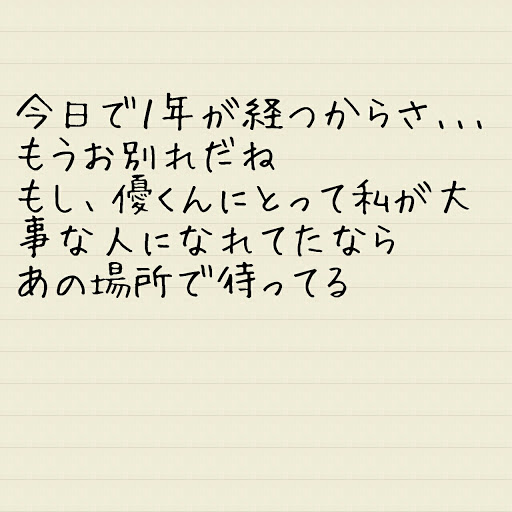 今日で1年が経つからさ、、、
もうお別れだね
もし、優くんにとって私が大
事な人になれてたなら
あの場所で待ってる